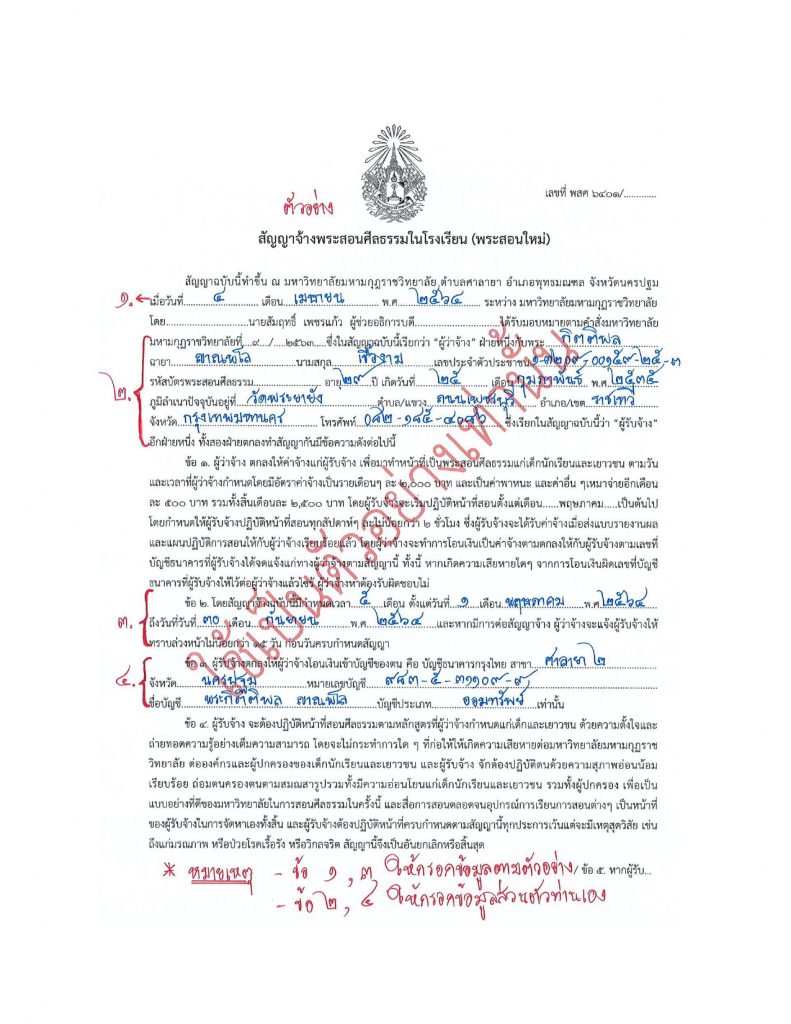 เลขที่ พสศ ๖๔๐๑/............
ตัวอย่าง
สัญญาจ้างพระสอนศีลธรรมในโรงเรียน (พระสอนใหม่)
สัญญาฉบับนี้ทำขึ้น ณ มหาวิทยาลัยมหามกุฏราชวิทยาลัย ตำบลศาลายา อำเภอพุทธมณฑล จังหวัดนครปฐม
๑. เมื่อวันที่ ๕ เดือน เมษายน พ.ศ. ๒๕๖๔ ระหว่าง มหาวิทยาลัยมหามกุฏราชวิทยาลัย
โดย นายสัมฤทธิ์ เพชรแก้ว ผู้ช่วยอธิการบดี ได้รับมอบหมายตามคำสั่งมหาวิทยาลัย
มหามกุฏราชวิทยาลัยที่ ๙ / ๒๕๖๓ ซึ่งในสัญญาฉบับนี้เรียกว่า "ผู้ว่าจ้าง" ฝ่ายหนึ่งกับพระ กิตติพล
๒. ฉายา ญาณพโล นามสกุล เชื้องาม เลขประจำตัวประชาชน ๑-๗๒๐๙-๐๐๑๕๙-๒๕-๓
รหัสบัตรพระสอนศีลธรรม อายุ ๒๙ ปี เกิดวันที่ ๒๕ เดือน กุมภาพันธ์ พ.ศ. ๒๕๓๕
ภูมิลำเนาปัจจุบันอยู่ที่ วัดพระยายัง ตำบล/แขวง ถนนเพชรบุรี อำเภอ/เขต ราชเทวี
จังหวัด กรุงเทพมหานคร โทรศัพท์ ๐๘๒-๑๘๕-๔๐๘๖ ซึ่งเรียกในสัญญาฉบับนี้ว่า "ผู้รับจ้าง"
อีกฝ่ายหนึ่ง ทั้งสองฝ่ายตกลงทำสัญญากันมีข้อความดังต่อไปนี้
ข้อ ๑. ผู้ว่าจ้าง ตกลงให้ค่าจ้างแก่ผู้รับจ้าง เพื่อมาทำหน้าที่เป็นพระสอนศีลธรรมแก่เด็กนักเรียนและเยาวชน ตามวัน
และเวลาที่ผู้ว่าจ้างกำหนดโดยมีอัตราค่าจ้างเป็นรายเดือนๆ ละ ๒,๐๐๐ บาท และเป็นค่าพาหนะ และค่าอื่น ๆเหมาจ่ายอีกเดือน
ละ ๕๐๐ บาท รวมทั้งสิ้นเดือนละ ๒,๕๐๐ บาท โดยผู้รับจ้างจะเริ่มปฏิบัติหน้าที่สอนตั้งแต่เดือน......พฤษภาคม......เป็นต้นไป
โดยกำหนดให้ผู้รับจ้างปฏิบัติหน้าที่สอนทุกสัปดาห์ๆ ละไม่น้อยกว่า ๒ ชั่วโมง ซึ่งผู้รับจ้างจะได้รับค่าจ้างเมื่อส่งแบบรายงานผล
และแผนปฏิบัติการสอนให้กับผู้ว่าจ้างเรียบร้อยแล้ว โดยผู้ว่าจ้างจะทำการโอนเงินเป็นค่าจ้างตามตกลงให้กับผู้รับจ้างตามเลขที่
บัญชีธนาคารที่ผู้รับจ้างได้จัดแจ้งแก่ทางผู้ว่าจ้างตามสัญญานี้ ทั้งนี้ หากเกิดความเสียหายใดๆ จากการโอนเงินผิดเลขที่บัญชี
ธนาคารที่ผู้รับจ้างให้ไว้ต่อผู้ว่าจ้างแล้วไซร้ ผู้ว่าจ้างหาต้องรับผิดชอบไม่
ข้อ ๒. โดยสัญญาจ้างฉบับนี้มีกำหนดเวลา ๕ เดือน ตั้งแต่วันที่ ๑ เดือน พฤษภาคม พ.ศ. ๒๕๖๔
๓. ถึงวันที่วันที่ ๓๐ เดือน กันยายน พ.ศ. ๒๕๖๔ และหากมีการต่อสัญญาจ้าง ผู้ว่าจ้างจะแจ้งผู้รับจ้างให้
ทราบล่วงหน้าไม่น้อยกว่า ๑๕ วัน ก่อนวันครบกำหนดสัญญา
ข้อ ๓. ผู้รับจ้างตกลงให้ผู้ว่าจ้างโอนเงินเข้าบัญชีของตน คือ บัญชีธนาคารกรุงไทย สาขา ศาลายา ๒
๔. จังหวัด นครปฐม หมายเลขบัญชี ๙๘๓-๕-๓๑๑๐๙-๙
ชื่อบัญชี พระกิตติพล ญาณพโล บัญชีประเภท ออมทรัพย์ เท่านั้น
ข้อ ๔. ผู้รับจ้าง จะต้องปฏิบัติหน้าที่สอนศีลธรรมตามหลักสูตรที่ผู้ว่าจ้างกำหนดแก่เด็กและเยาวชน ด้วยความตั้งใจและ
ถ่ายทอดความรู้อย่างเต็มความสามารถ โดยจะไม่กระทำการใด ๆ ที่ก่อให้ให้เกิดความเสียหายต่อมหาวิทยาลัยมหามกุฏราช
วิทยาลัย ต่อองค์กรและผู้ปกครองของเด็กนักเรียนและเยาวชน และผู้รับจ้าง จักต้องปฏิบัติตนด้วยความสุภาพอ่อนน้อม
เรียบร้อย ถ่อมตนครองตนตามสมณสารูปรวมทั้งมีความอ่อนโยนแก่เด็กนักเรียนและเยาวชน รวมทั้งผู้ปกครอง เพื่อเป็น
แบบอย่างที่ดีของมหาวิทยาลัยในการสอนศีลธรรมในครั้งนี้ และสื่อการสอนตลอดจนอุปกรณ์การเรียนการสอนต่างๆ เป็นหน้าที่
ของผู้รับจ้างในการจัดหาเองทั้งสิ้น และผู้รับจ้างต้องปฏิบัติหน้าที่ครบกำหนดตามสัญญานี้ทุกประการเว้นแต่จะมีเหตุสุดวิสัย เช่น
ถึงแก่มรณภาพ หรือป่วยโรคเรื้อรัง หรือวิกลจริต สัญญานี้จึงเป็นอันยกเลิกหรือสิ้นสุด
/ ข้อ ๕. หากผู้รับ...
* หมายเหตุ - ข้อ ๑ , ๓ ให้กรอกข้อมูลตามตัวอย่าง
- ข้อ ๒ , ๔ ให้กรอกข้อมูลส่วนตัวท่านเอง
ใช้เป็นตัวอย่างเท่านั้น